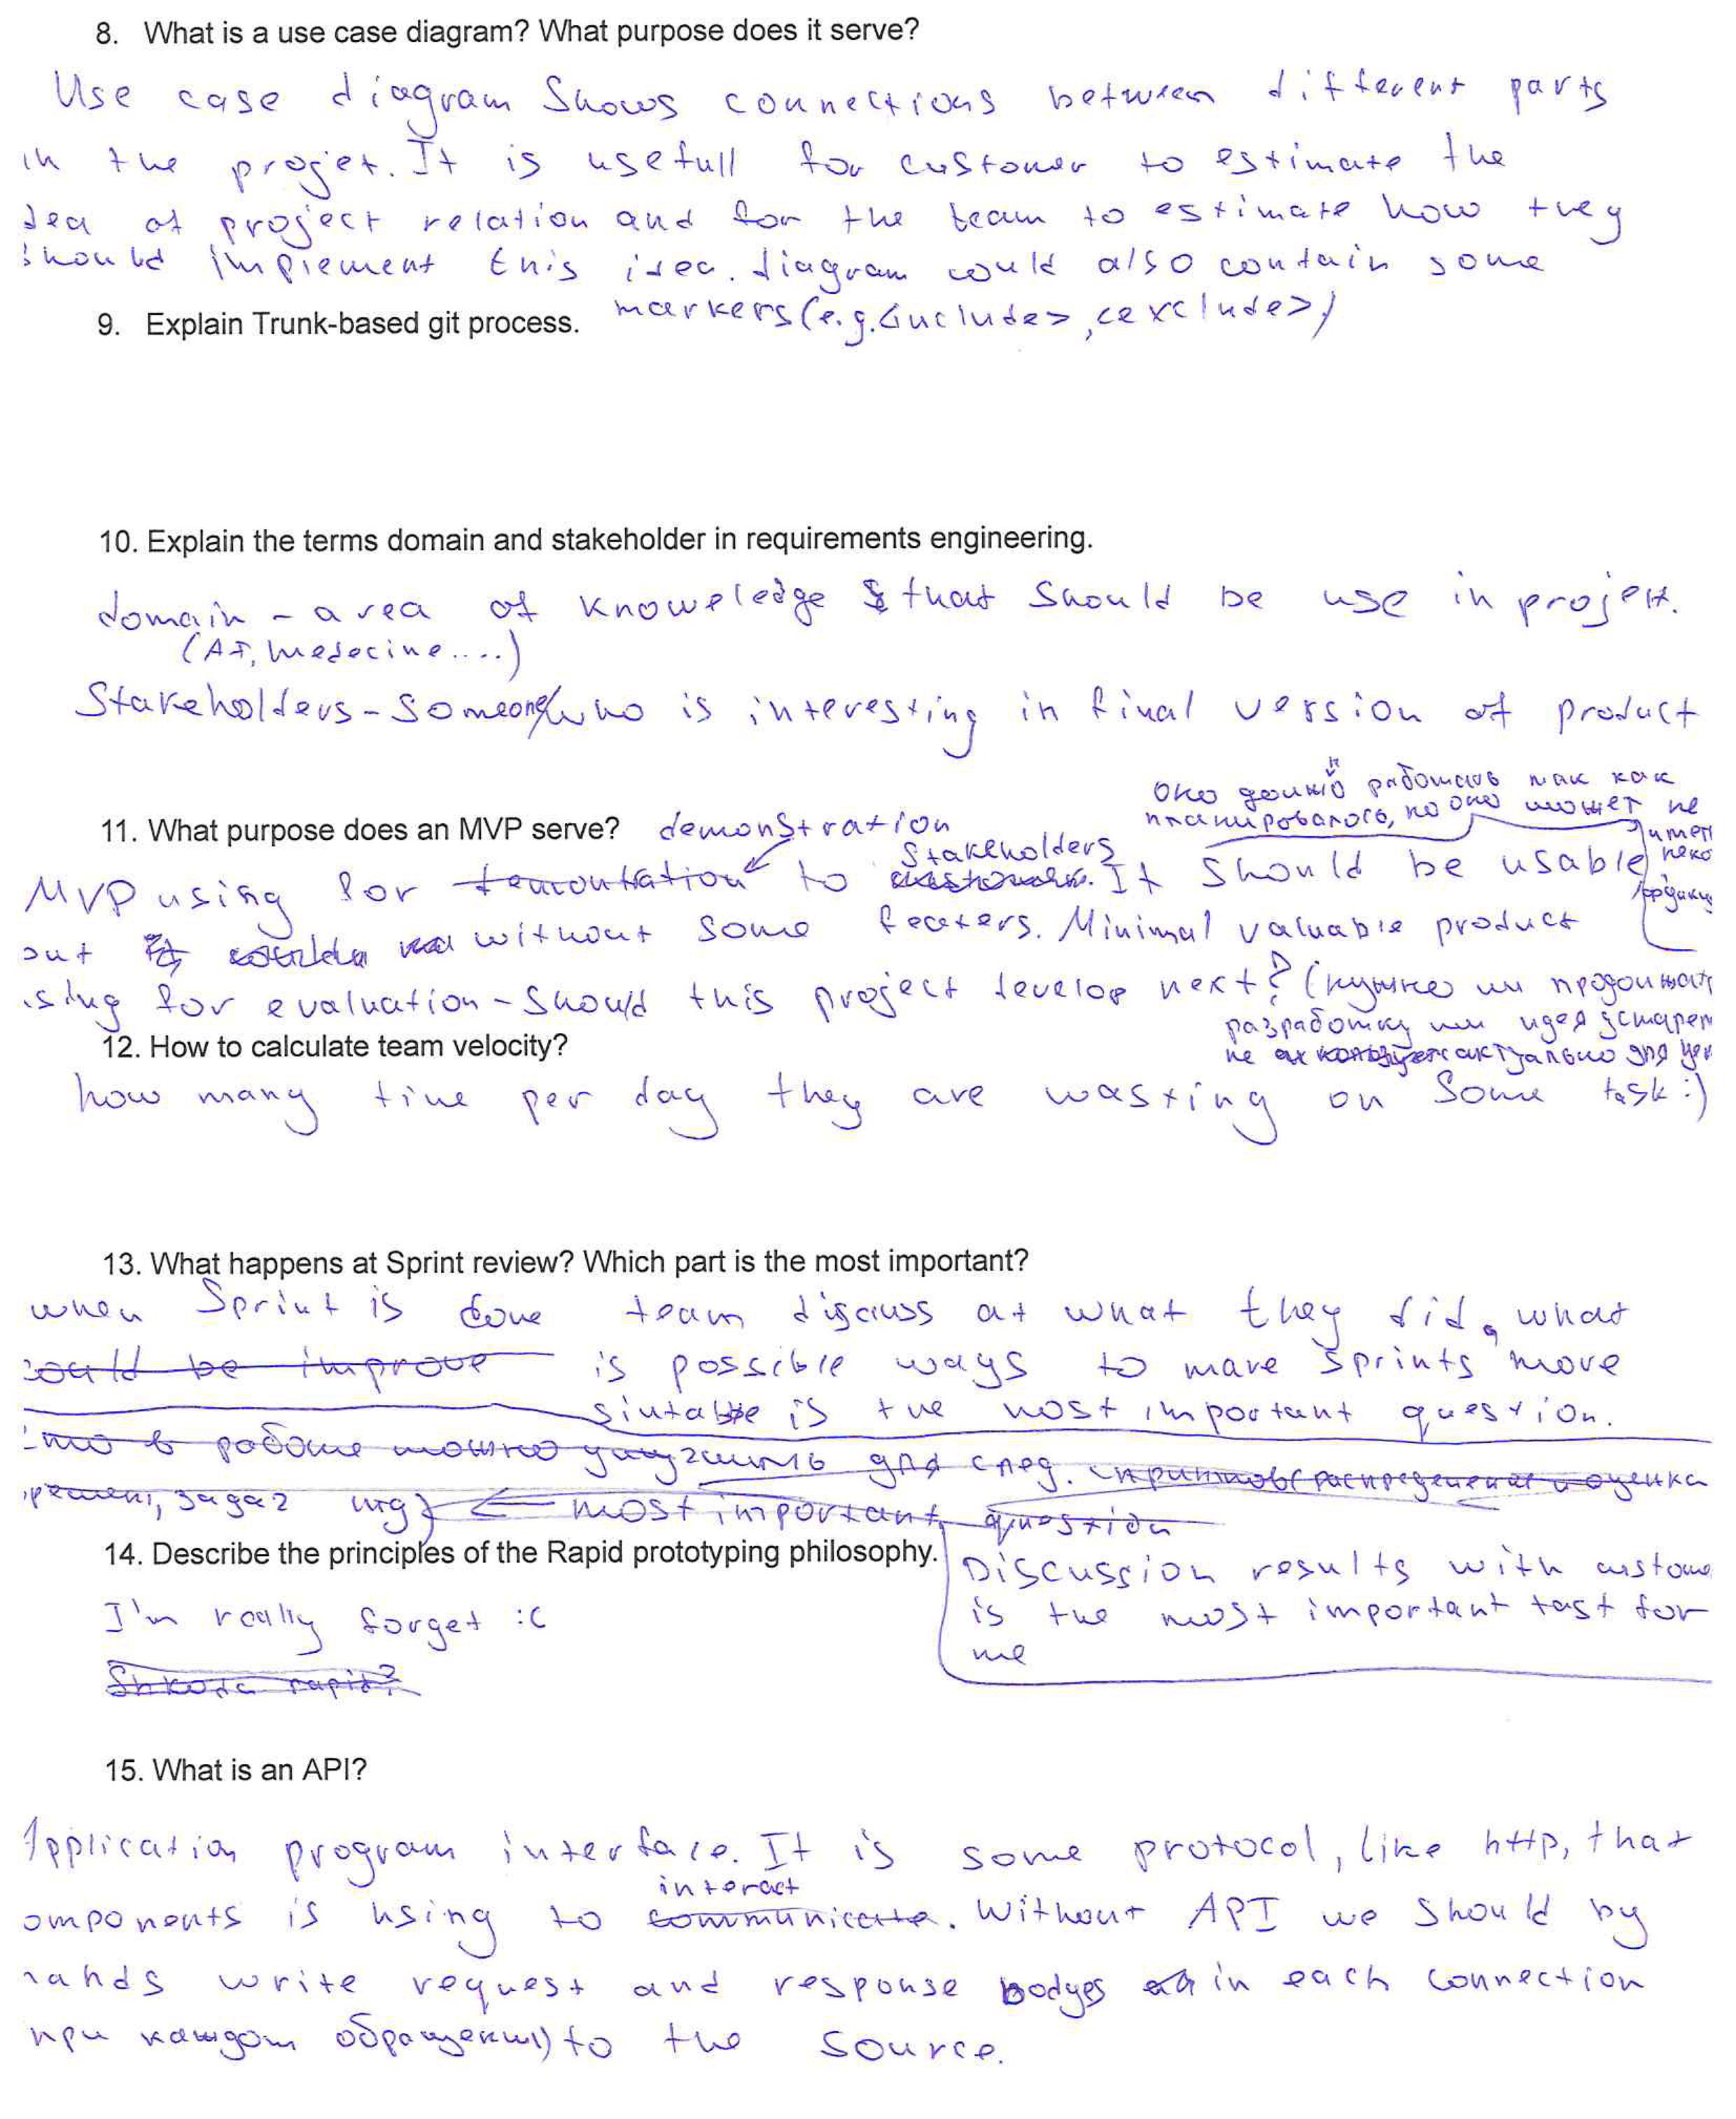 8. What is a use case diagram? What purpose does it serve?
Use case diagram shows connections between different parts
in the projet. It is usefull for customer to estimate the
dea of project relation and for the team to estimate how they
should implement this idea. diagram could also contain some
markers (e.g. <include>, <exclude>)
9. Explain Trunk-based git process.
10. Explain the terms domain and stakeholder in requirements engineering.
domain - area of knoweledge that should be use in projekt.
(AI, medecine....)
Stakeholders - someone who is interesting in final version of product
оно должно работать так как
планировалось, но оно может не
11. What purpose does an MVP serve? demonstration
Stakeholders
MVP using for demontration to customers. It should be usable
out without some featers. Minimal valuable product
using for evaluation - should this project develop next? (нужно ли продолжать
разработку или идея устарел
не актуально для
12. How to calculate team velocity?
how many time per day they are wasting on some task :)
13. What happens at Sprint review? Which part is the most important?
when Sprint is done team discuss at what they did, what
could be improve is possible ways to make sprints more
siutable is the most important question.
что в работе можно улучшить для след. спринтов (распределение и оценка
времени, задач итд) <= most important question
14. Describe the principles of the Rapid prototyping philosophy.
Discussion results with custome
is the most important tast for
me
I'm really forget :c
15. What is an API?
Application program interface. It is some protocol, like http, that
interact
omponents is using to communicate. Without API we should by
hands write request and response bodyes in each connection
при каждом обращении) to the source.